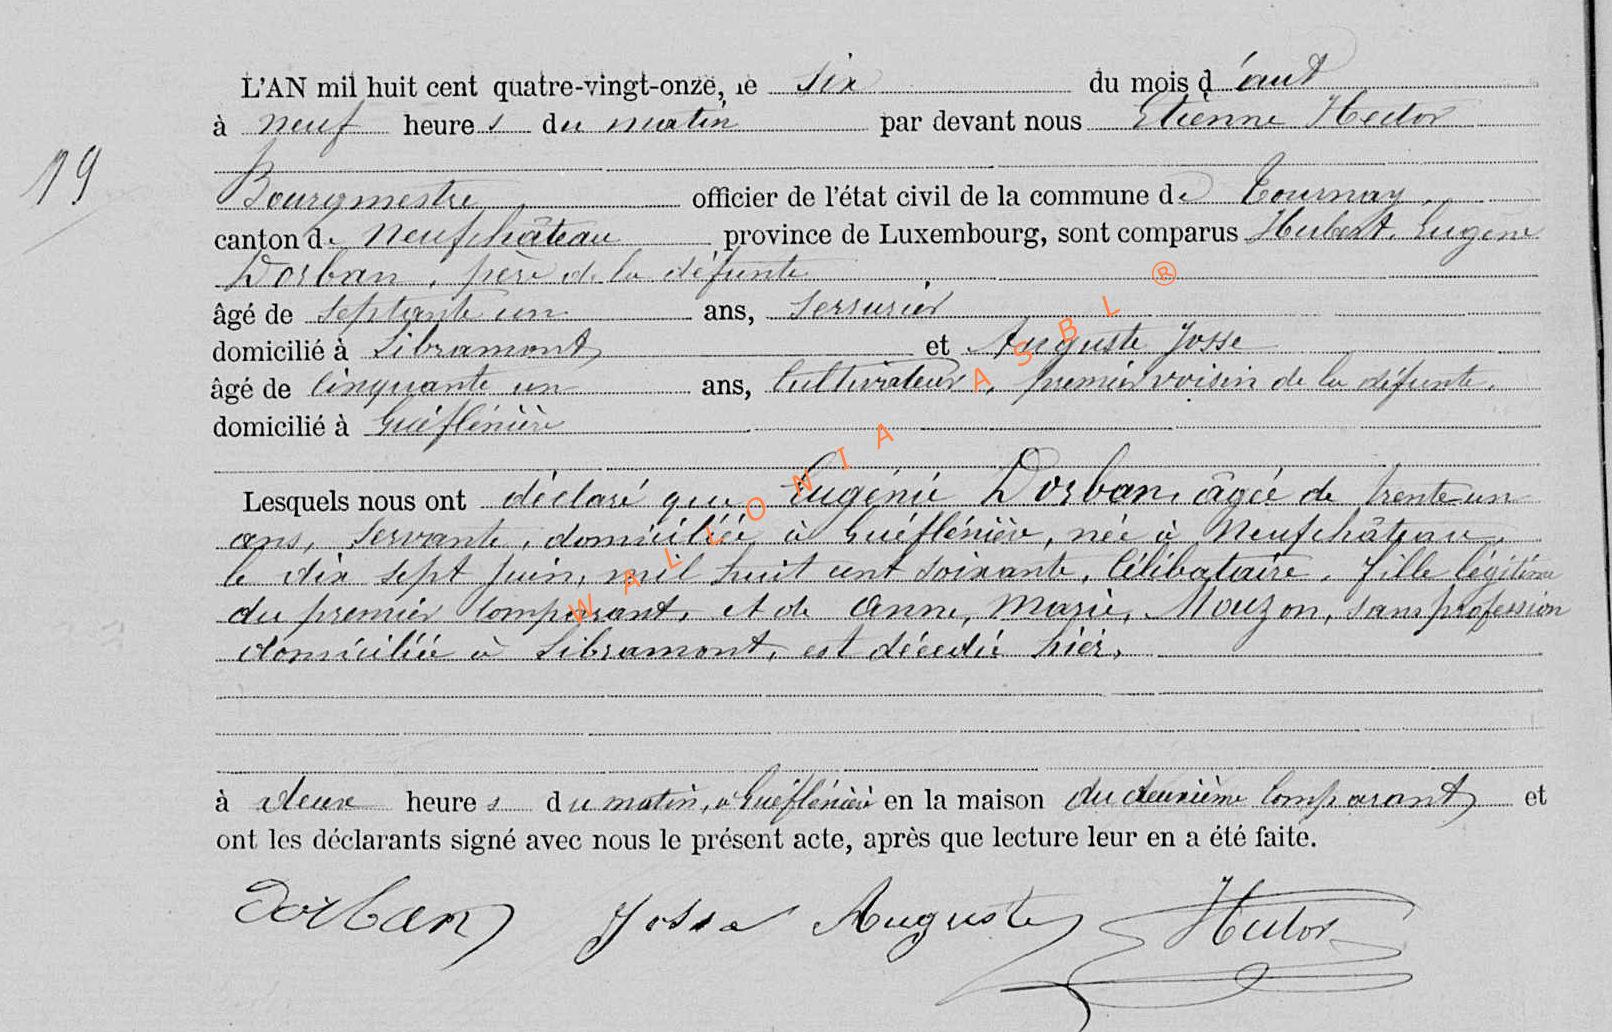 L'AN mil huit cent quatre-vingt-onze, le six du mois d'aut
à neuf heures du matin par devant nous Etienne Hector
19
Bourgmestre officier de l'état civil de la commune de Tournay
canton de Neufchâteau province de Luxembourg, sont comparus Hubert, Eugène
Dorban, père de la défunte
âgé de septante un ans, serrurier
domicilié à Libramont et Auguste Josse
âgé de cinquante un ans, Cultivateur, premier voisin de la défunte,
domicilié à Guéflénière
Lesquels nous ont déclaré que Eugénie Dorban, âgée de trente-un
ans, servante, domiciliée à Guéflénière, née à Neufchâteau,
le dix sept juin, mil huit cent soixante, Célibataire, fille légitime
du premier Comparant, et de Anne, Marie, Mouzon, sans profession
domiciliée à Libramont, est décédée hier,
à deux heures du matin, à Guéflénière en la maison du deuxième Comparant, et
ont les déclarants signé avec nous le présent acte, après que lecture leur en a été faite.
Dorban Josse Auguste Hector
WALLONIA ASBL ®